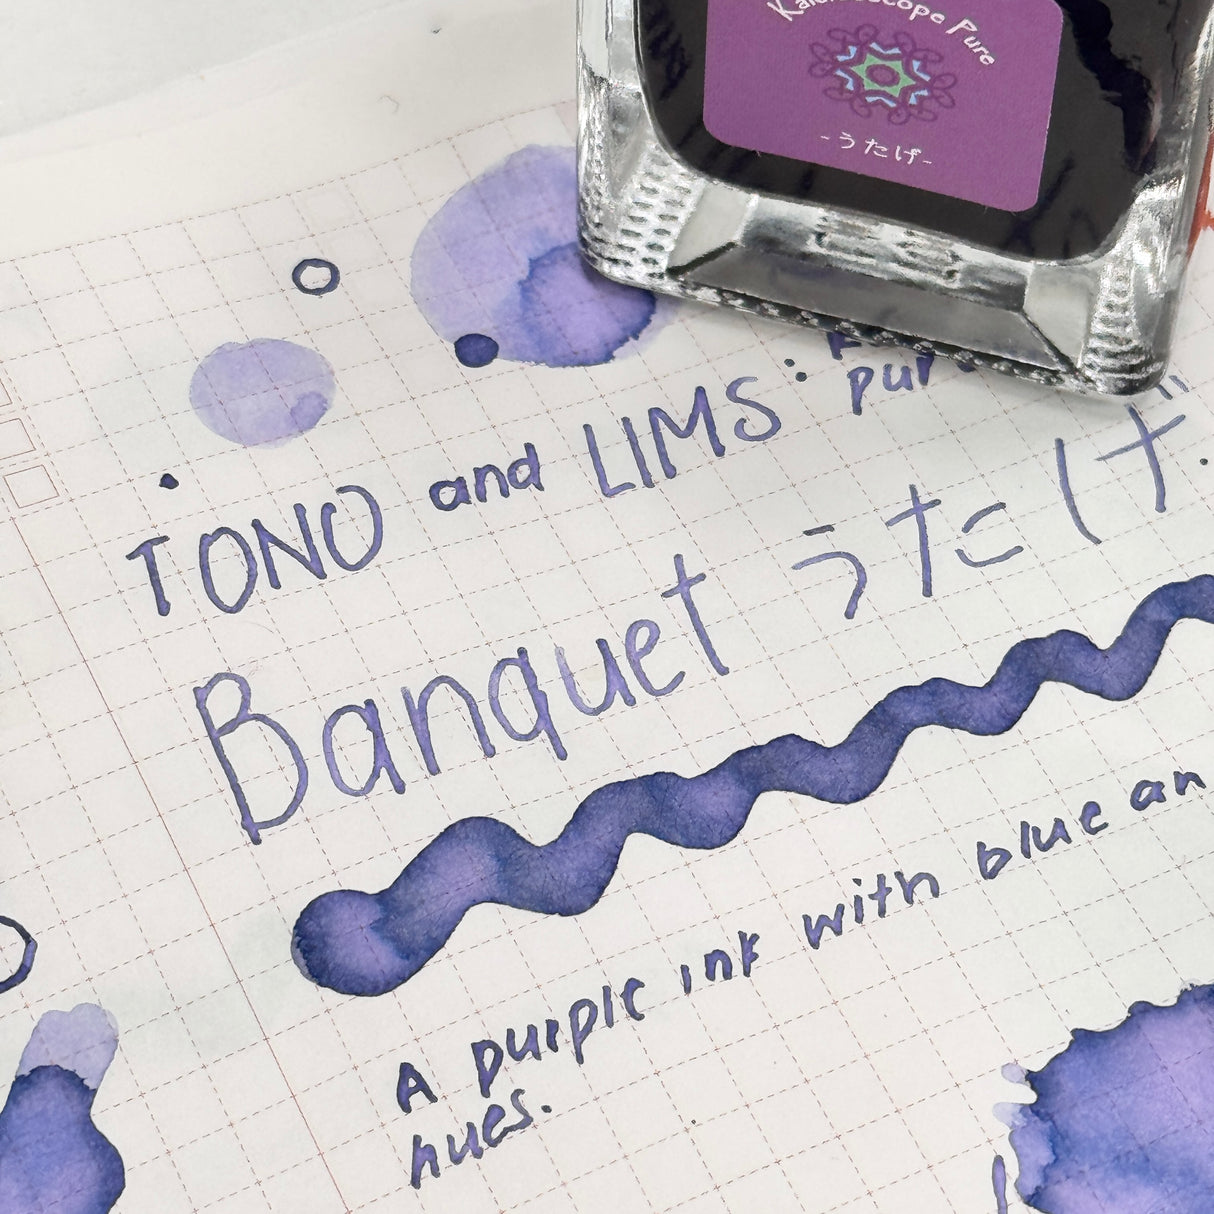 Kaleidoscope Pure
-うたげ-
TONO and LIMS:
Banquet うたげ
A purple ink with blue an
hues.